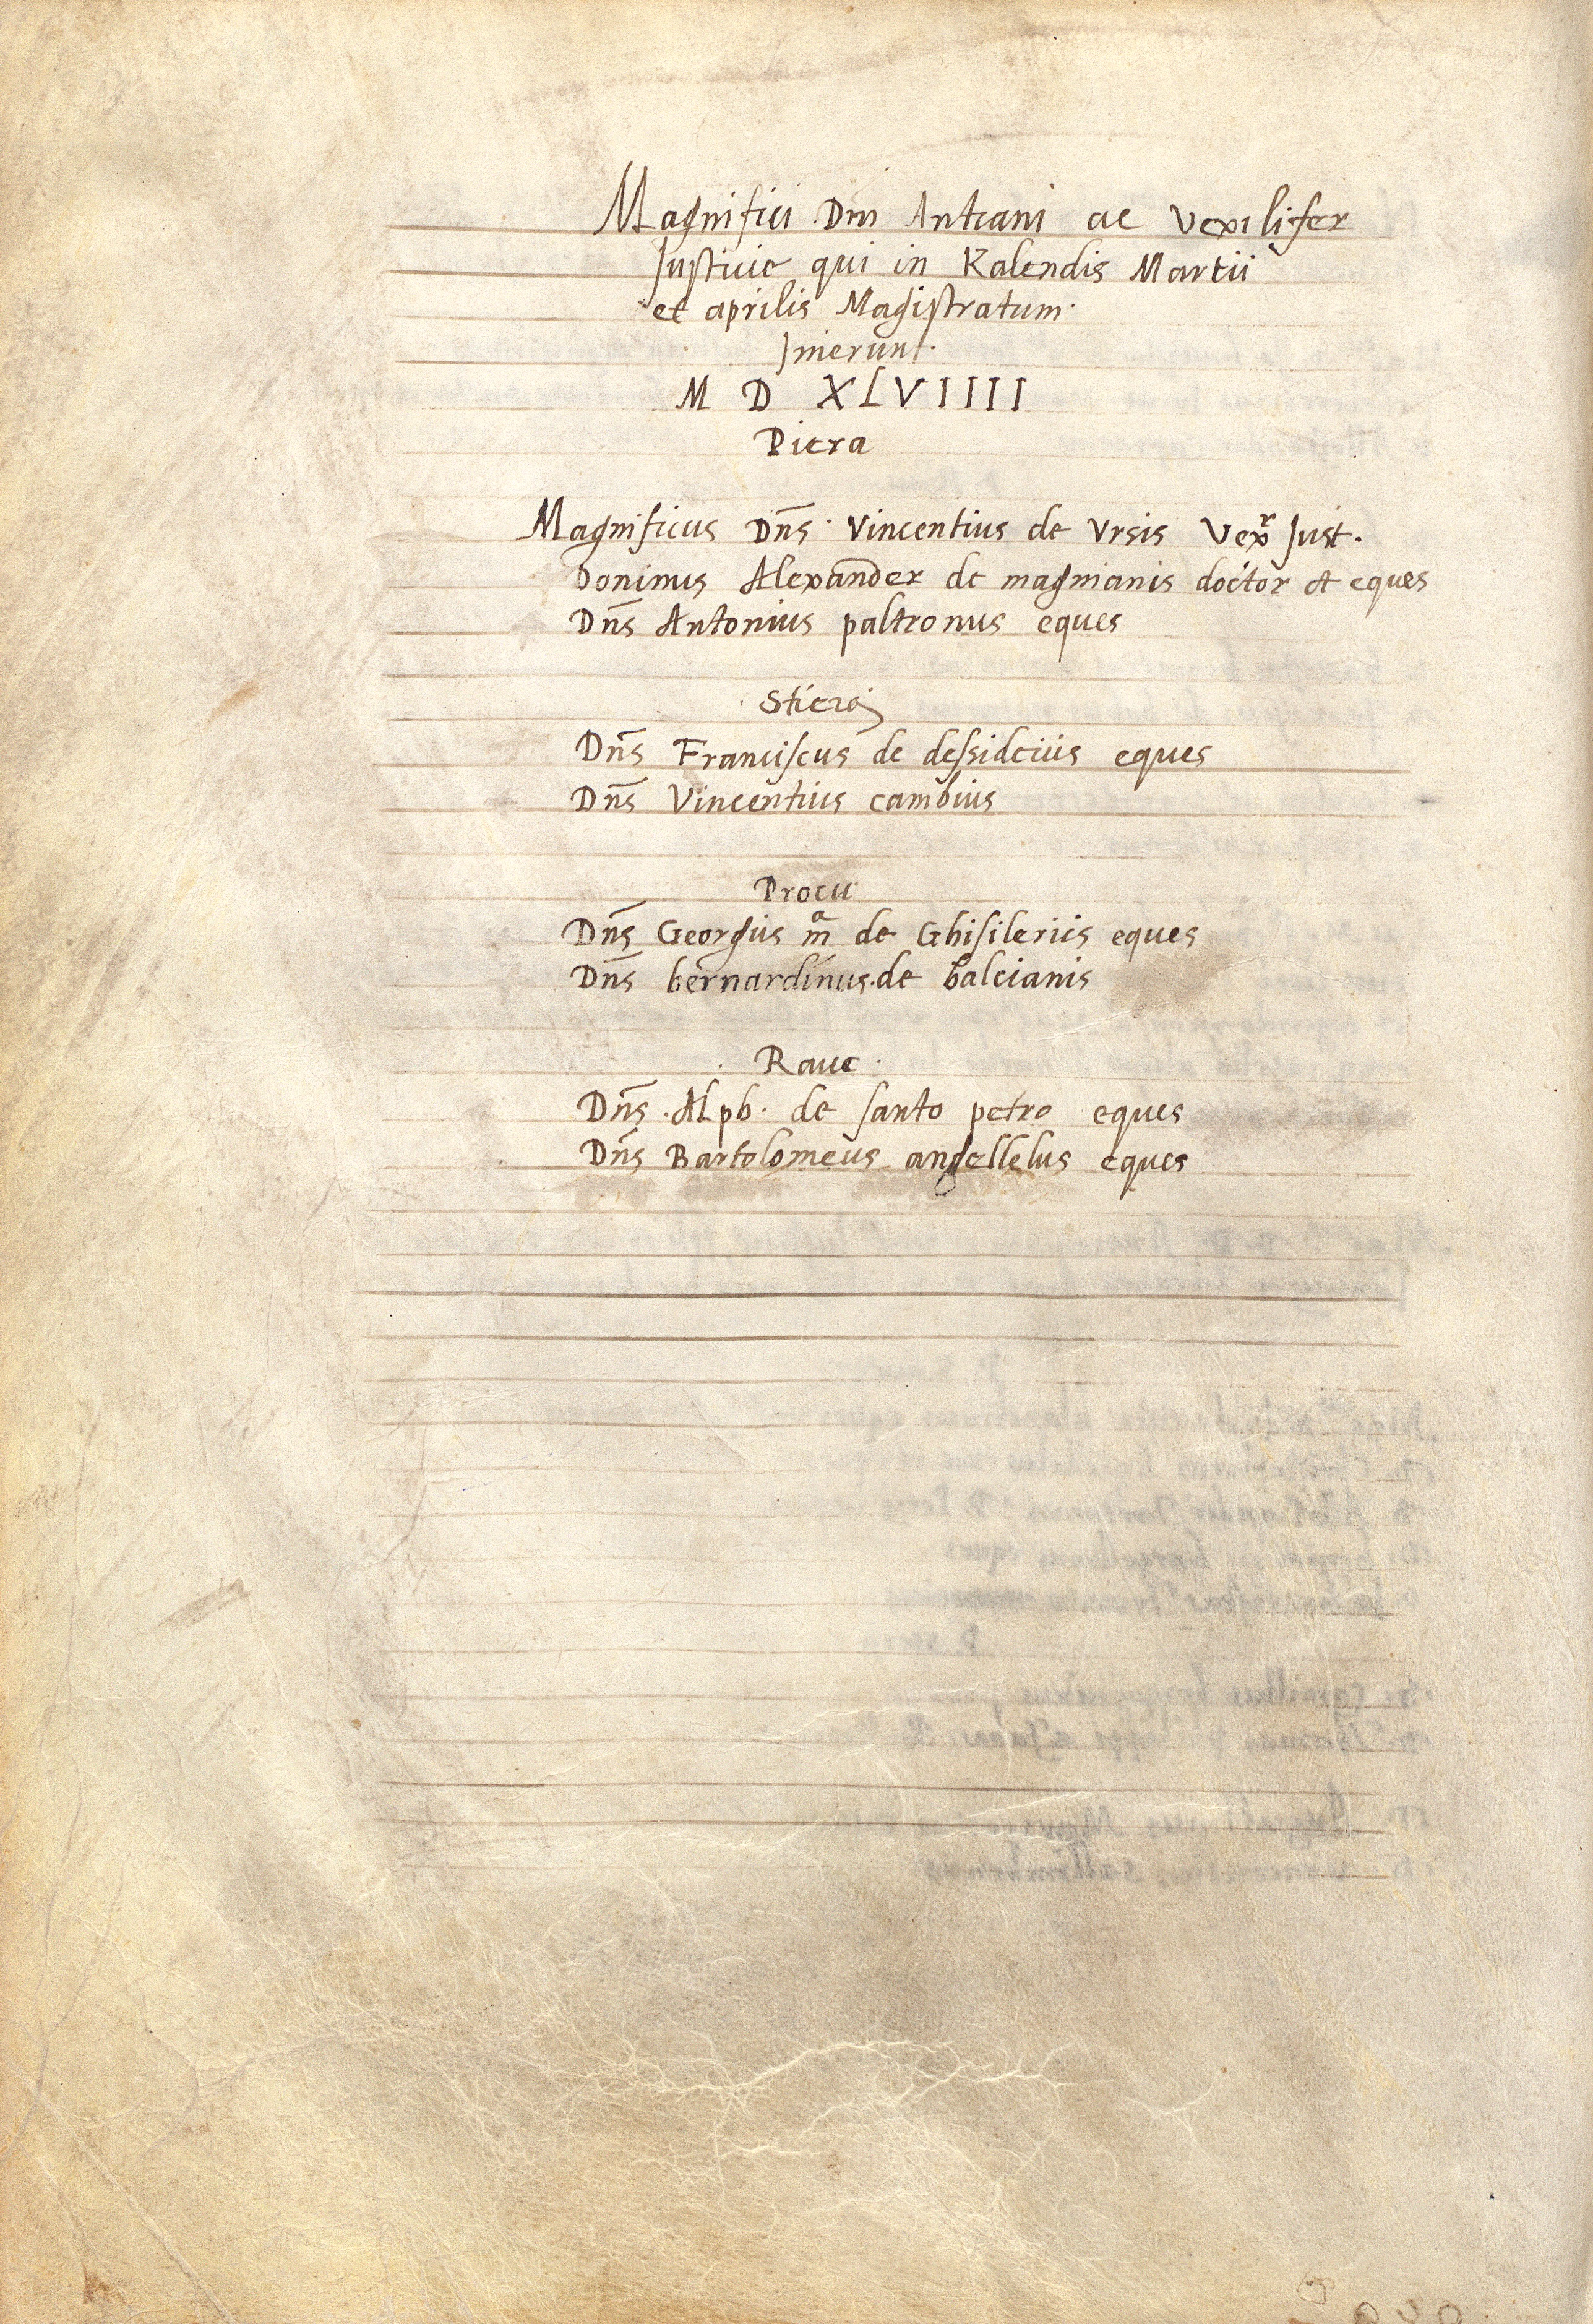 Magnifici Dni Antiani ac vexilifer
Justicie qui in Kalendis Martii
et aprilis Magistratum.
Jnierunt.
M D XLVIIII
Piera
Magnificus Dn̄s. Vincentius de Vrsis Vexr Just.
Dominus Alexander de magnanis doctor et eques
Dn̄s Antonius paltronus eques
Stiera
Dn̄s Franciscus de dessideiiis eques
Dn̄s Vincentius cambius
Procu
Dn̄s Georgius ma de Ghisileriis eques
Dn̄s bernardinus. de balcianis
. Raue .
Dn̄s . Alph. de santo petro eques
Dn̄s Bartolomeus angellelus eques